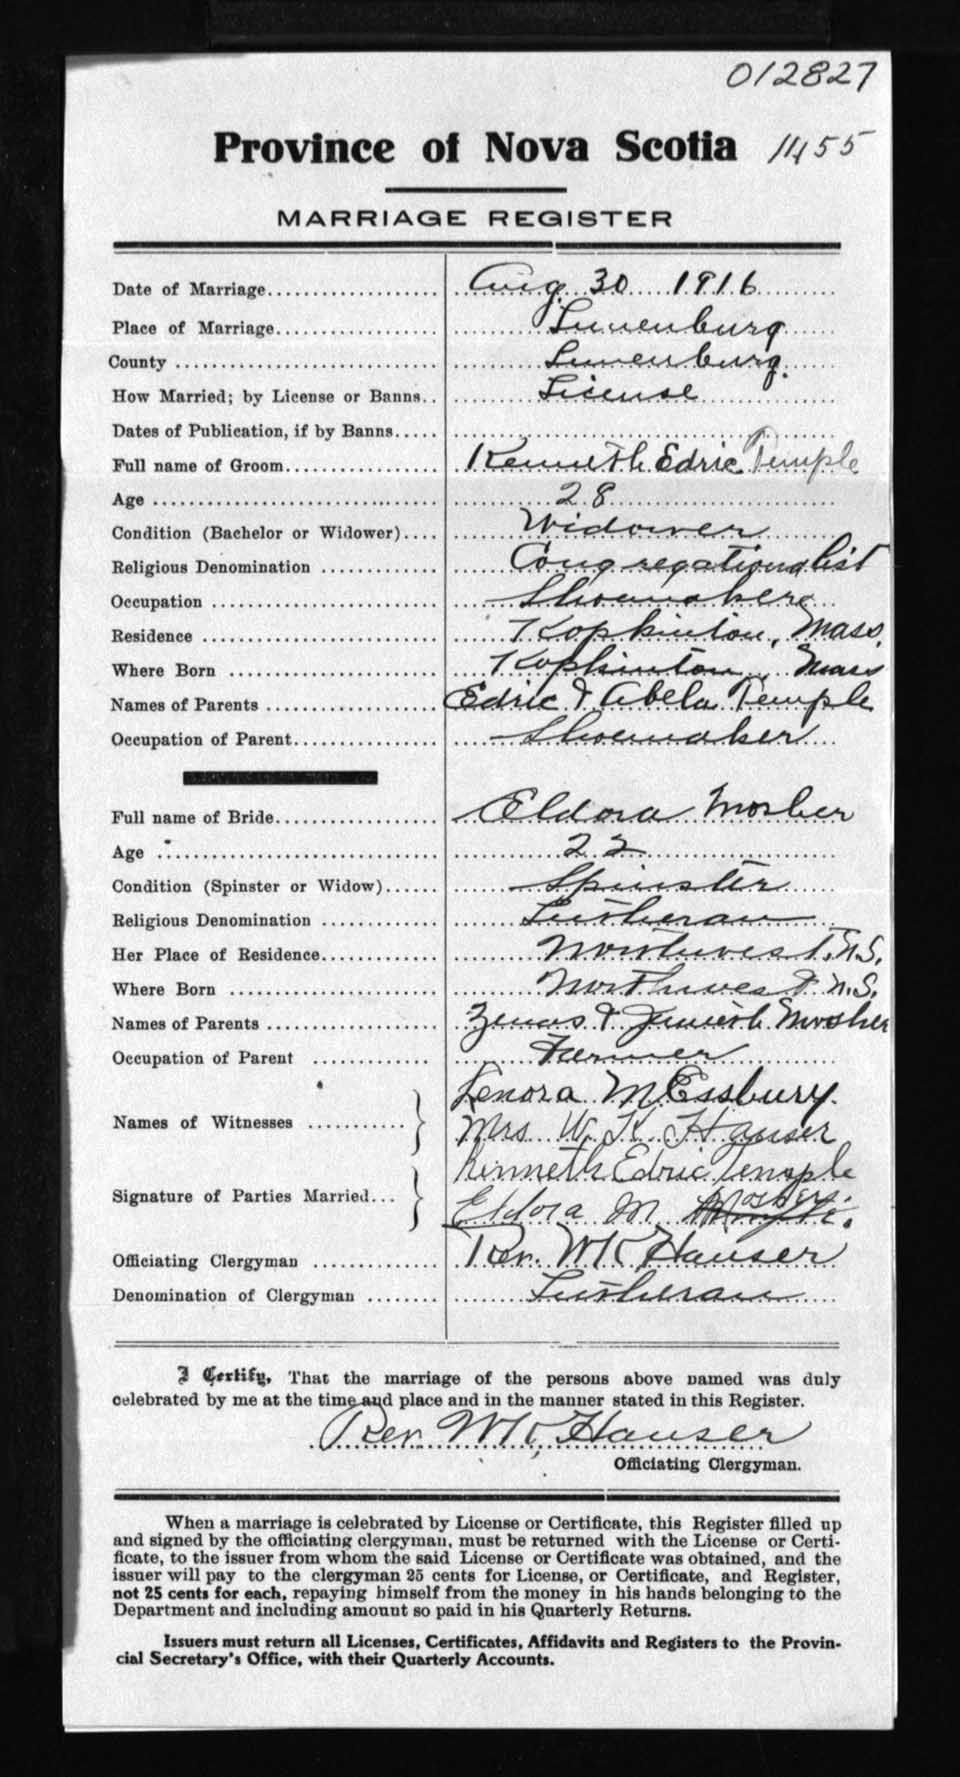 012827
Province of Nova Scotia 1455
MARRIAGE REGISTER
Date of Marriage.................... Aug. 30 1916
Place of Marriage.................... Lunenburg
County .............................. Lunenburg.
How Married; by License or Banns.. License
Dates of Publication, if by Banns.....
Full name of Groom.................. Kenneth Edric Temple
Age ................................. 28
Condition (Bachelor or Widower).... Widower
Religious Denomination ............. Congregationalist
Occupation .......................... Shoemaker
Residence ........................... Hopkinton, Mass.
Where Born ......................... Hopkinton, Mass
Names of Parents ................... Edric & Abela Temple
Occupation of Parent................ Shoemaker
Full name of Bride................... Eldora Mosher
Age ................................. 22
Condition (Spinster or Widow)...... Spinster
Religious Denomination ............. Lutheran
Her Place of Residence.............. Northwest, N.S.
Where Born ......................... Northwest N.S.
Names of Parents ................... Zenas & Mosher
Occupation of Parent ............... Farmer
Lenora M Essbury.
Names of Witnesses ...........
Mrs. W. K. Hauser
Kenneth Edric Temple
Signature of Parties Married...
Eldora M Moshers.
Officiating Clergyman ............... Rev. W K Hauser
Denomination of Clergyman ........ Lutheran
I Certify, That the marriage of the persons above named was duly
celebrated by me at the time and place and in the manner stated in this Register.
Rev. W K, Hauser
Officiating Clergyman.
When a marriage is celebrated by License or Certificate, this Register filled up
and signed by the officiating clergyman, must be returned with the License or Certi-
ficate, to the issuer from whom the said License or Certificate was obtained, and the
issuer will pay to the clergyman 25 cents for License, or Certificate, and Register,
not 25 cents for each, repaying himself from the money in his hands belonging to the
Department and including amount so paid in his Quarterly Returns.
Issuers must return all Licenses, Certificates, Affidavits and Registers to the Provin-
cial Secretary's Office, with their Quarterly Accounts.